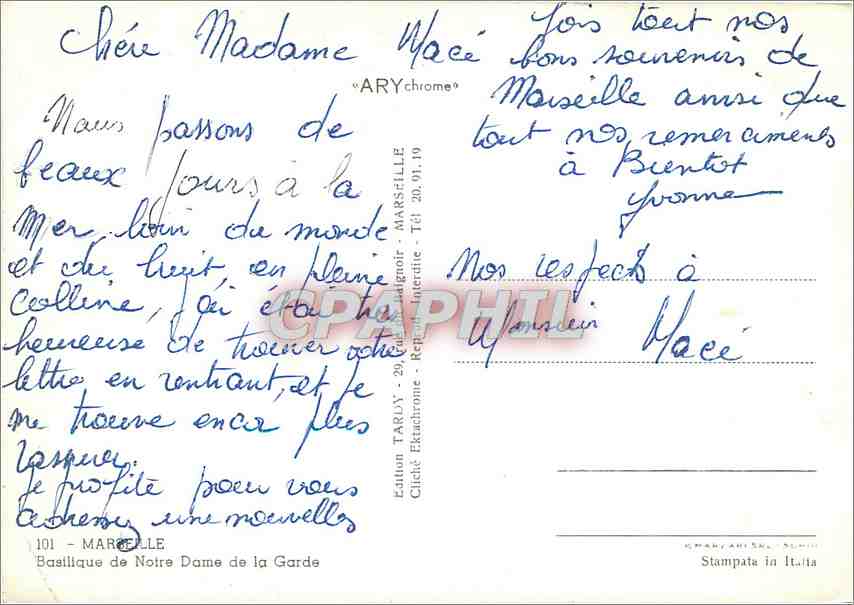 Chére Madame Macé
"ARYchrome"
Nous passons de
beaux jours à la
Mer, loin du monde
et du bruit, en pleine
colline, j'ai étai très
heureuse de trouver votre
lettre en rentrant, et je
me trouve encor plus
je profite pour vous
adresser une nouvelles
fois tout nos
bons souvenirs de
Marseille ainsi que
tout nos remerciments
à Bientot
Yvonne
Nos respects à
Monsieur Macé
CPAPHIL
Edition TARDY - 29, rue du Baignoir - MARSEILLE
Cliché Ektachrome - Reprod. Interdite - Tél 20.91.19
101 - MARSEILLE
Basilique de Notre Dame de la Garde
Stampata in Italia